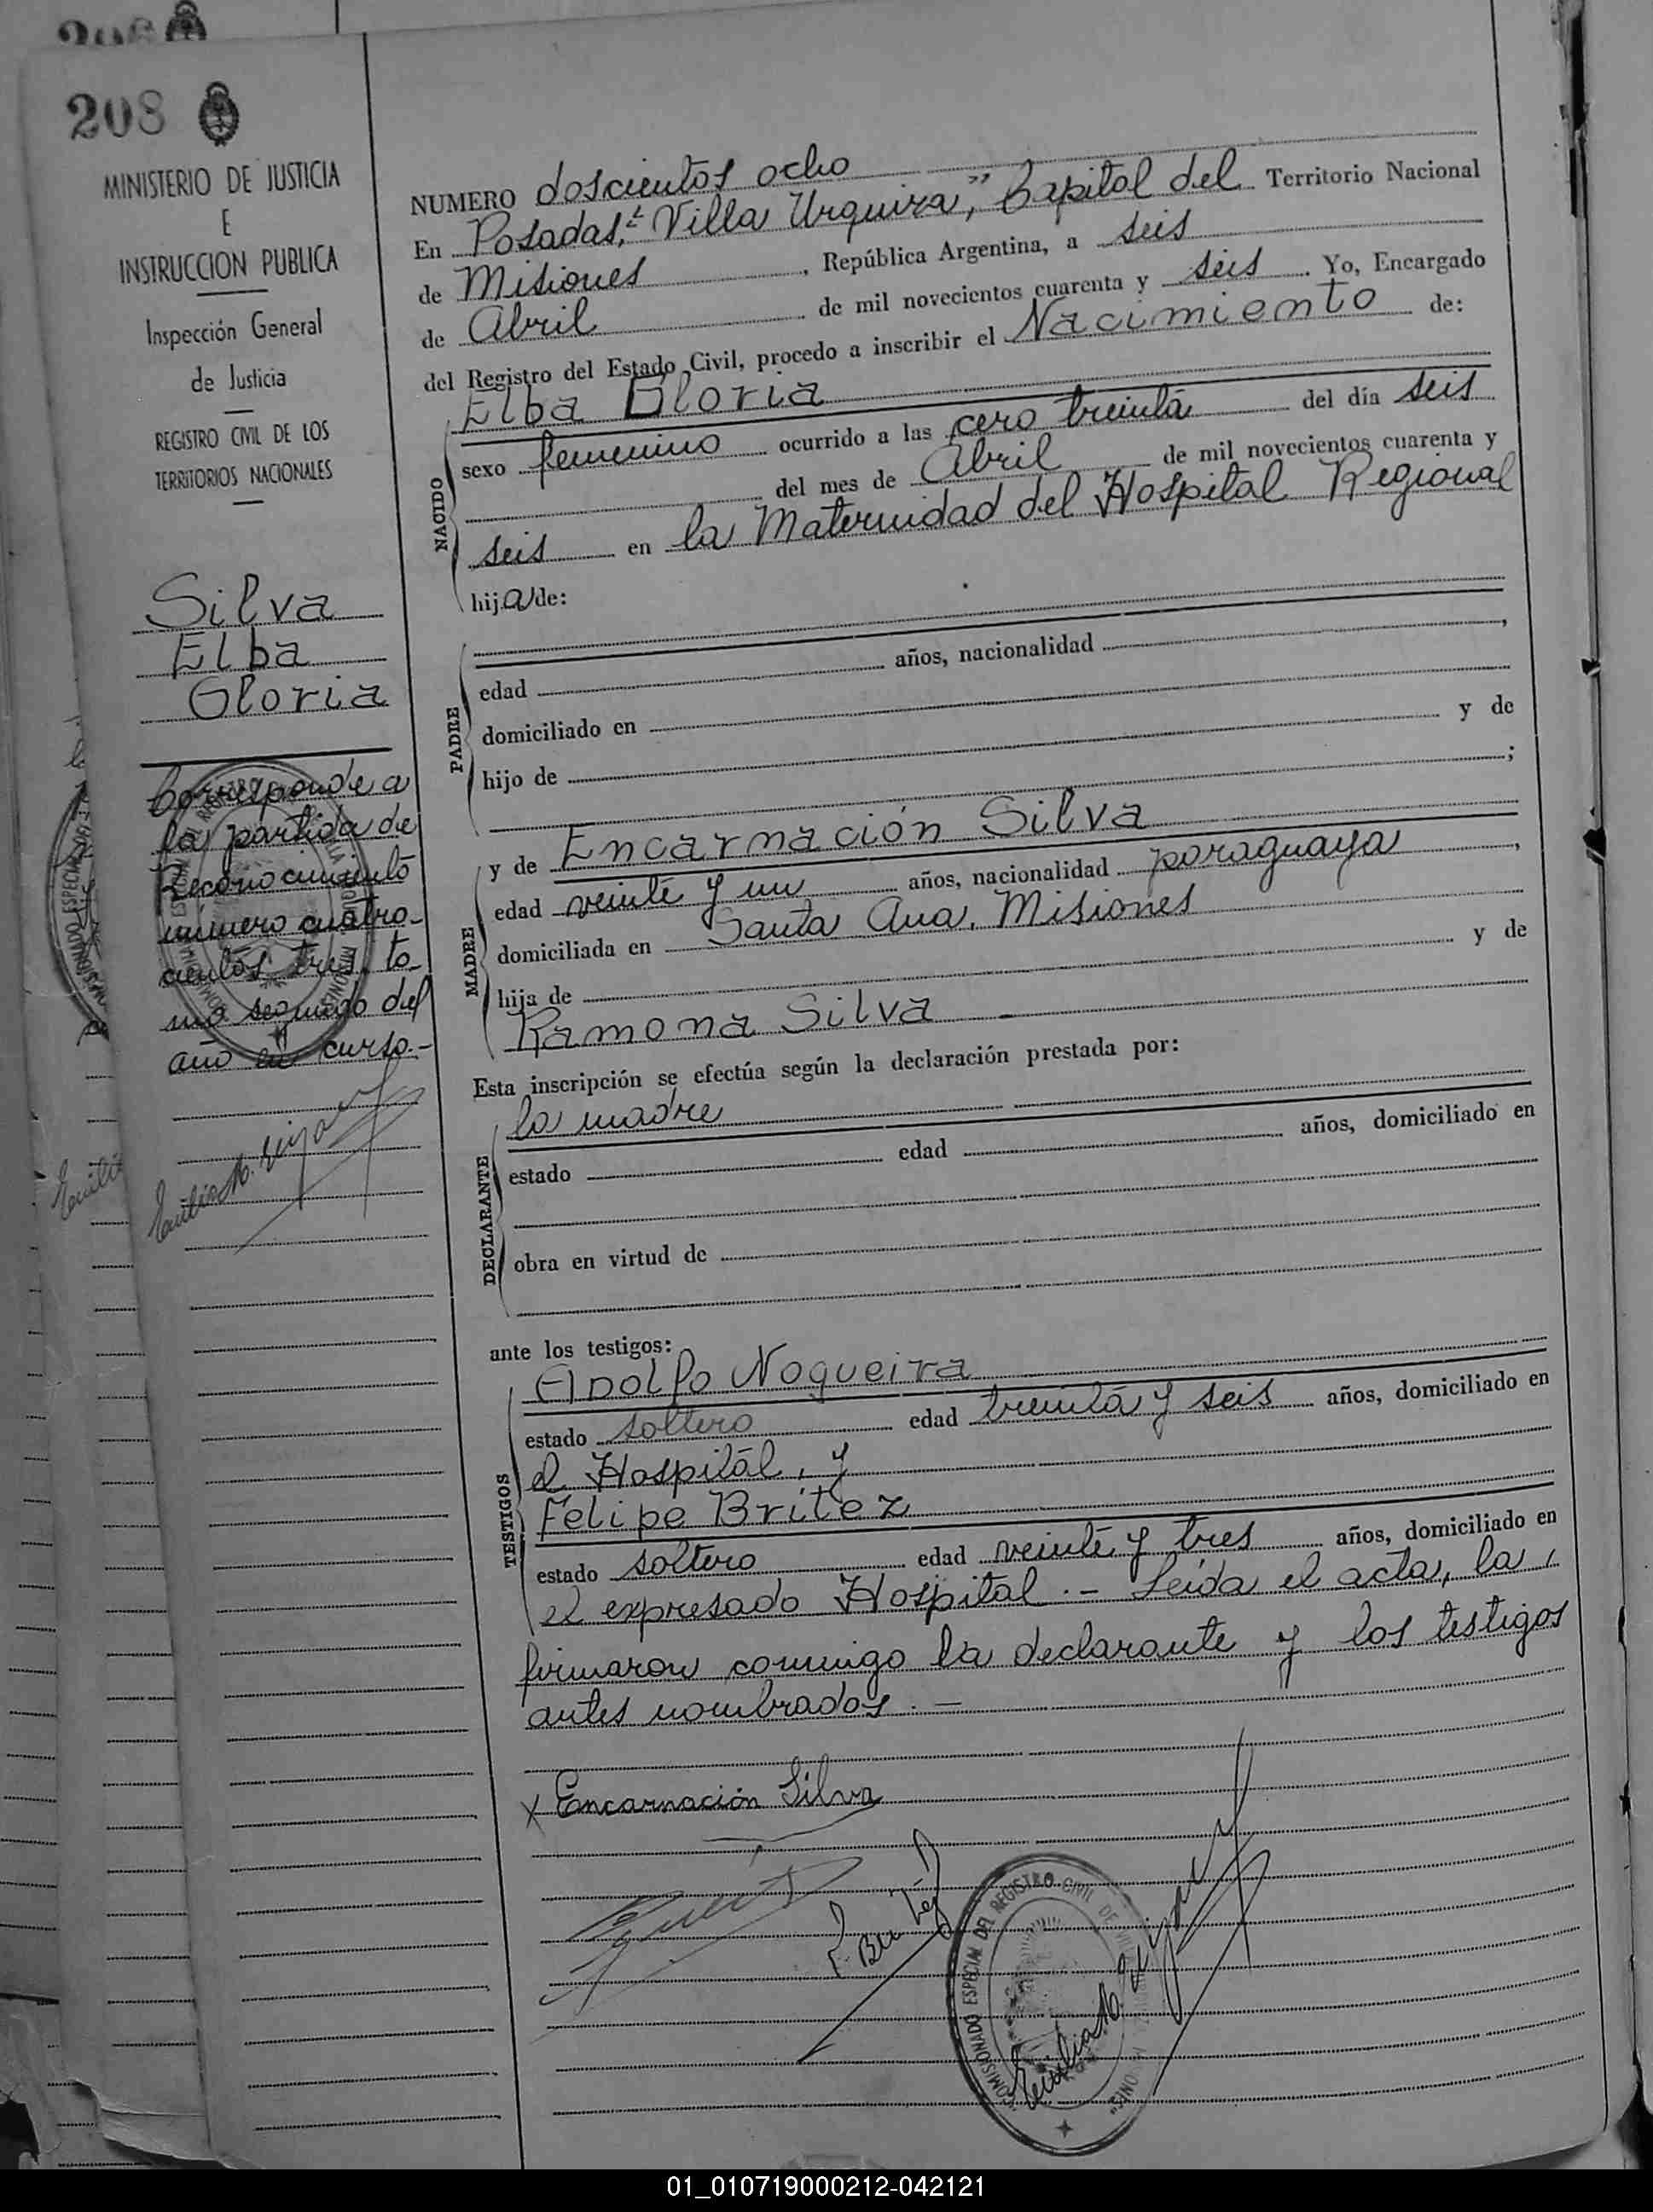 206
208
MINISTERIO DE JUSTICIA
E
INSTRUCCION PUBLICA
Inspección General
de Justicia
REGISTRO CIVIL DE LOS
TERRITORIOS NACIONALES
Silva
Elba
Gloria
Corresponde a
la partida de
Reconocimiento
número cuatro-
cientos tres, to-
mo segundo del
año en curso.-
NUMERO doscientos ocho
En Posadas, "Villa Urquiza", Capital del Territorio Nacional
de Misiones, República Argentina, a seis
de Abril de mil novecientos cuarenta y seis. Yo, Encargado
del Registro del Estado Civil, procedo a inscribir el Nacimiento de:
NACIDO
Elba Gloria
sexo femenino ocurrido a las cero treinta del día seis
del mes de Abril de mil novecientos cuarenta y
seis en la Maternidad del Hospital Regional
hija de:
PADRE
edad años, nacionalidad ,
domiciliado en
hijo de y de
;
MADRE
y de Encarnación Silva
edad veinte y un años, nacionalidad paraguaya,
domiciliada en Santa Ana, Misiones
hija de y de
Ramona Silva -
Esta inscripción se efectúa según la declaración prestada por:
DECLARANTE
la madre
estado edad años, domiciliado en
obra en virtud de
ante los testigos:
TESTIGOS
Adolfo Nogueira
estado soltero edad treinta y seis años, domiciliado en
el Hospital, y
Felipe Britez
estado soltero edad veinte y tres años, domiciliado en
el expresado Hospital.- Leída el acta, la
firmaron conmigo la declarante y los testigos
antes nombrados.-
x Encarnación Silva
COMISIONADO ESPECIAL DEL REGISTRO CIVIL DE
01_010719000212-042121